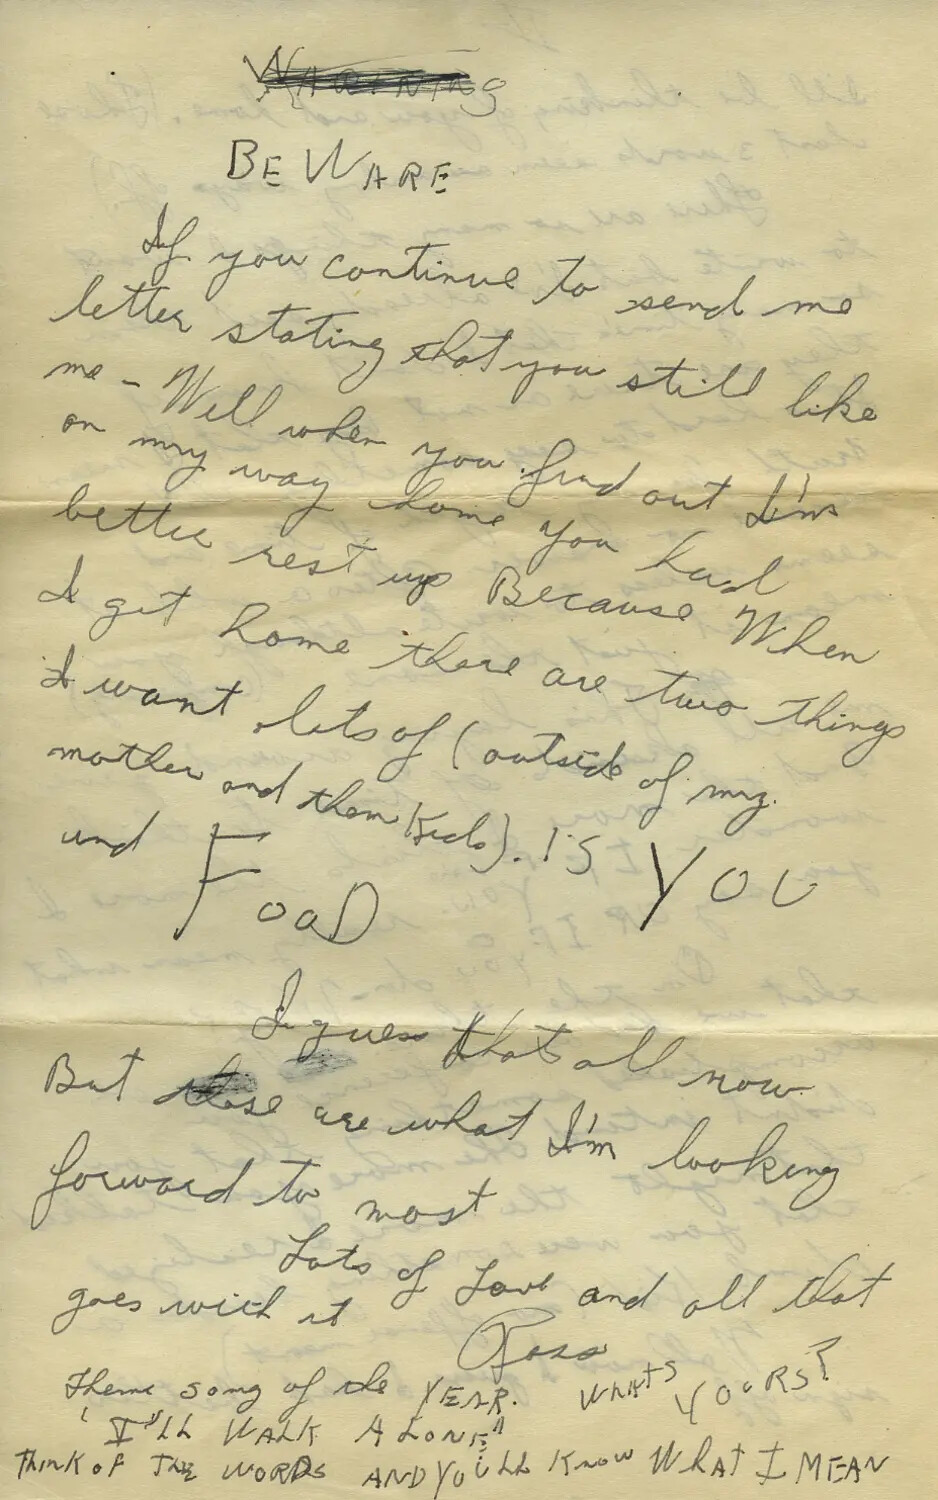 Warning
BEWARE
If you continue to send me
letter stating that you still like
me - Well when you find out I'm
on my way home you had
better rest up Because When
I get home there are two things
I want lots of (outside of my
mother and them kids). IS YOU
and FOOD
I guess that all now
But those are what I'm looking
forward to most
Lots of Love and all that
goes with it
Ross
Theme song of the YEAR. WHATS YOURS?
"I'LL WALK ALONE"
THINK OF THE WORDS AND YOU'LL KNOW WHAT I MEAN